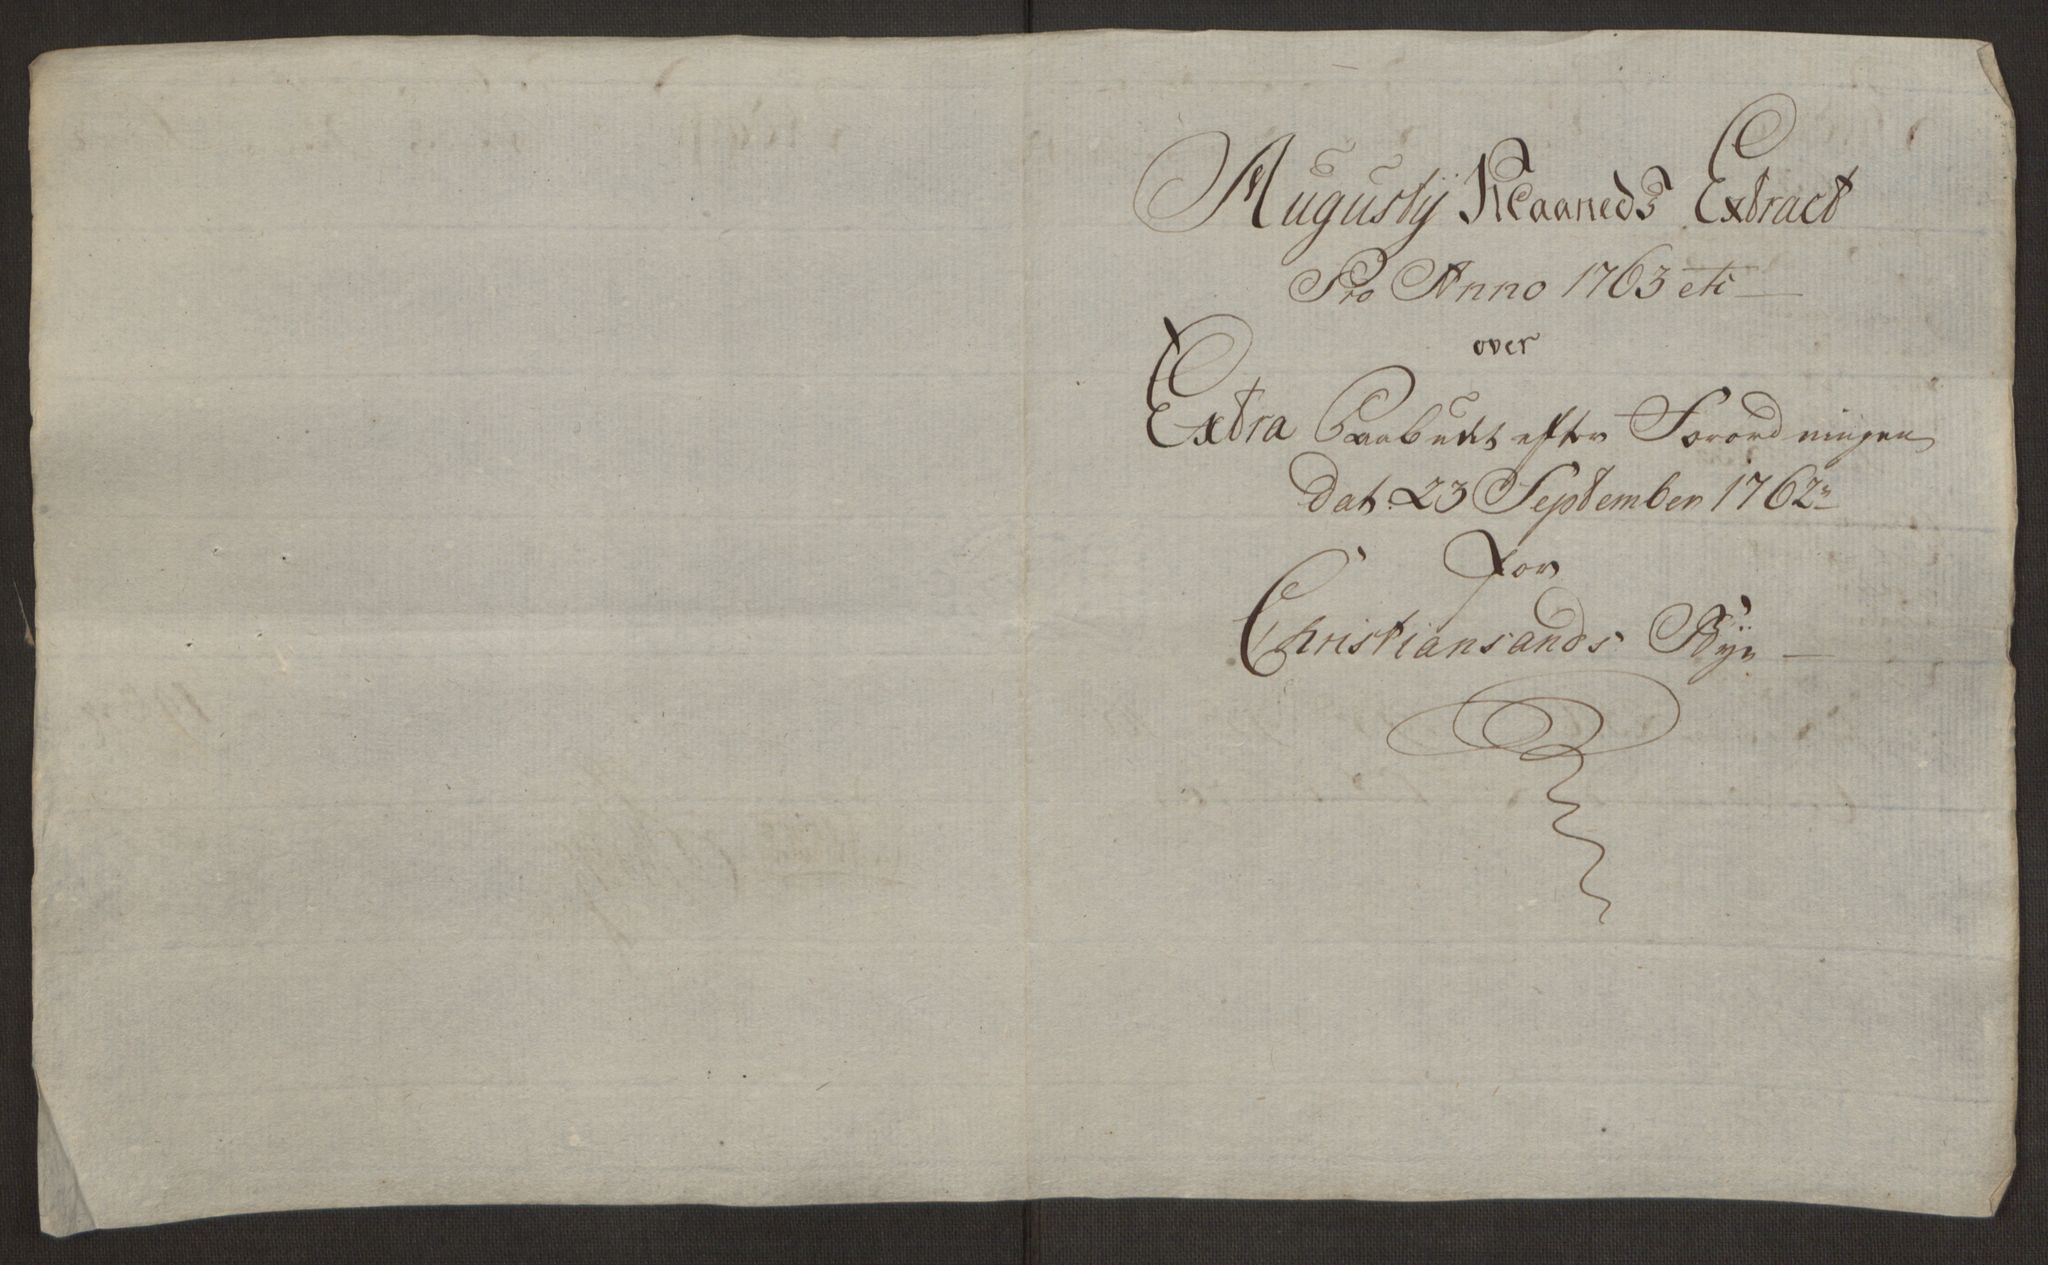 Augustij Maaneds Extract
Pro Anno 1763
over
Extra Paabudet efter Forordningen
dat: 23 September 1762
for
Christiansands Bye